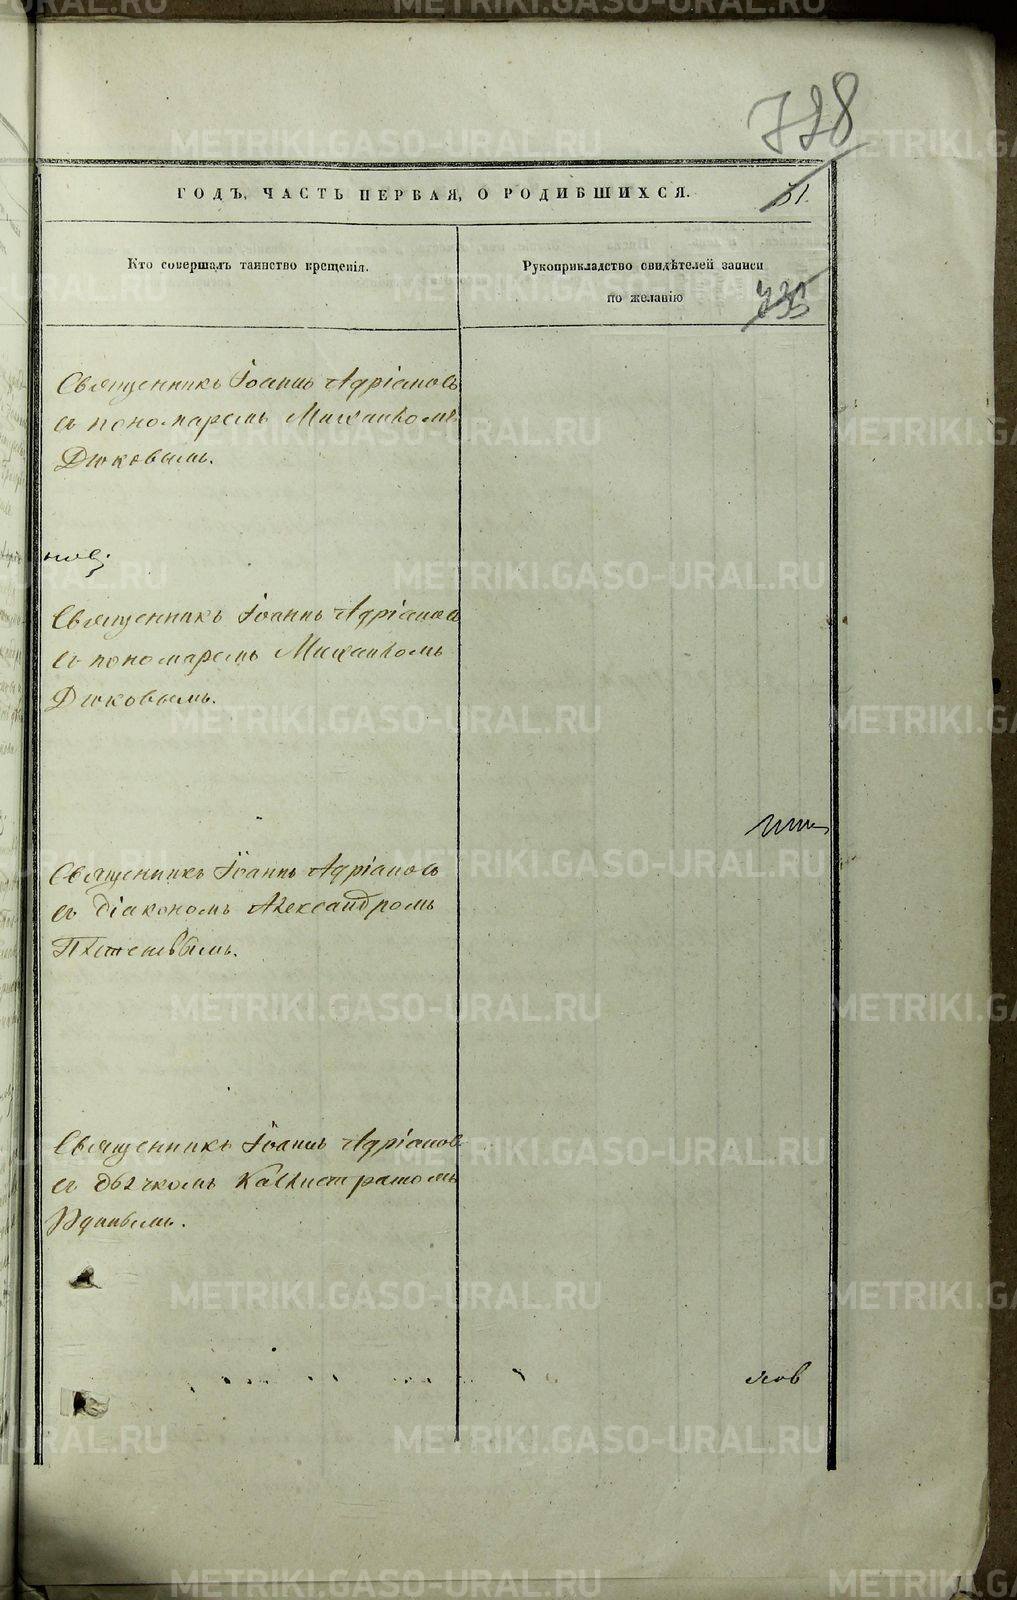 728
ГОДЪ, ЧАСТЬ ПЕРВАЯ, О РОДИВШИХСЯ.
51.
Кто совершалъ таинство крещенія.
Рукоприкладство свидѣтелей записи
по желанію
Священникъ Іоаннъ Адріановъ
съ пономаремъ Михаиломъ
Дюковымъ.
Священникъ Іоаннъ Адріановъ
съ пономаремъ Михаиломъ
Дюковымъ.
Священникъ Іоаннъ Адріановъ
съ діакономъ Александромъ
Священникъ Іоаннъ Адріановъ
съ дьячкомъ Каллистратомъ
METRIKI.GASO-URAL.RU